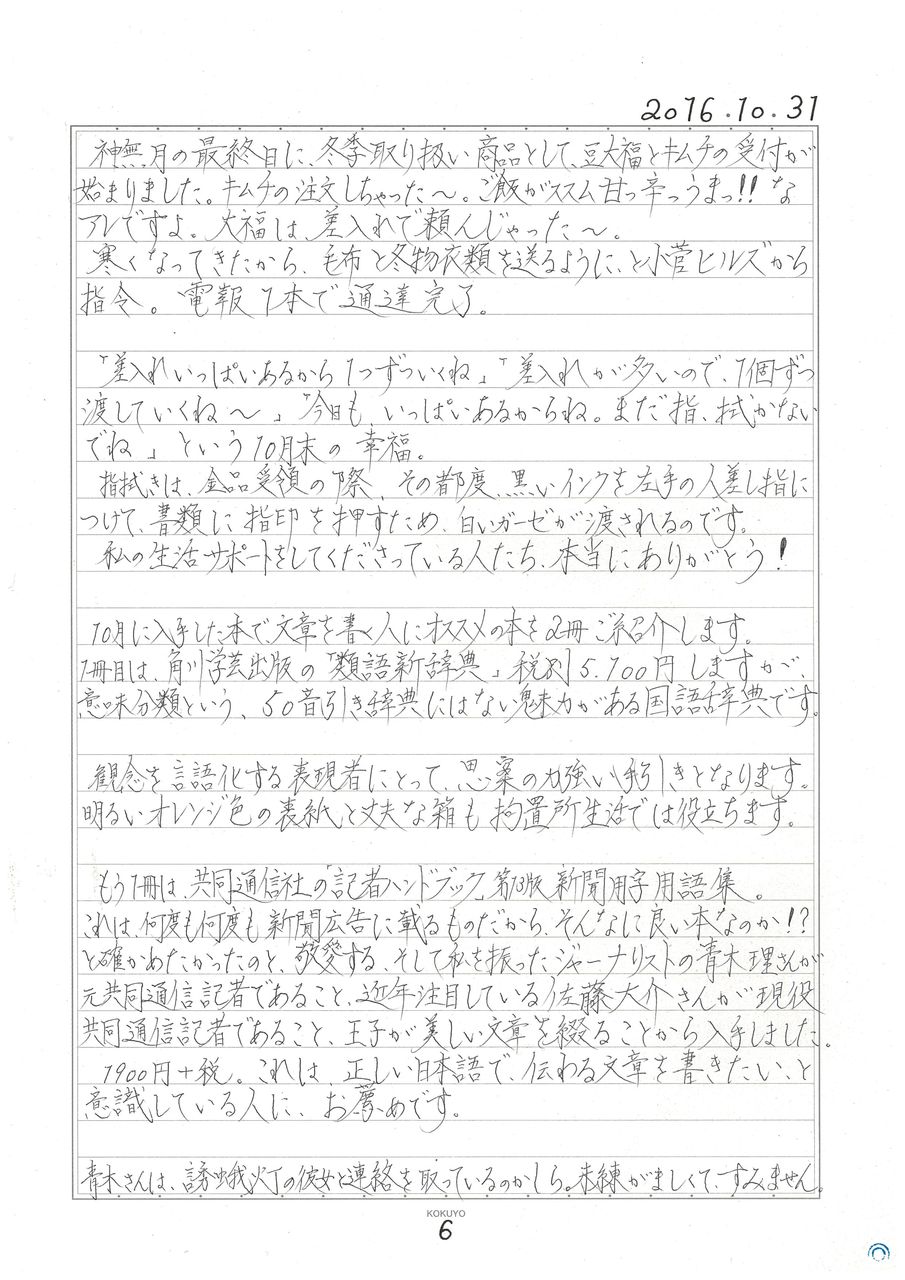 2016.10.31
神無月の最終日に、冬季取り扱い商品として、豆大福とキムチの受付が
始まりました。キムチの注文しちゃった～。ご飯がススム甘っ辛っうまっ!! な
アレですよ。大福は、差入れで頼んじゃった～。
寒くなってきたから、毛布と冬物衣類を送るように、と小菅ヒルズから
指令。電報1本で通達完了。
「差入れいっぱいあるから1つずついくね」「差入れが多いので、1個ずつ
渡していくね～」「今日も、いっぱいあるからね。まだ指、拭かない
でね」という10月末の幸福。
指拭きは、金品受領の際、その都度、黒いインクを左手の人差し指に
つけて、書類に指印を押すため、白いガーゼが渡されるのです。
私の生活サポートをしてくださっている人たち、本当にありがとう!
10月に入手した本で、文章を書く人にオススメの本を2冊ご紹介します。
1冊目は、角川学芸出版の「類語新辞典」税別5.100円しますが、
意味分類という、50音引き辞典にはない魅力がある国語辞典です。
観念を言語化する表現者にとって、思案の力強い手引きとなります。
明るいオレンジ色の表紙と丈夫な箱も拘置所生活では役立ちます。
もう1冊は、共同通信社の「記者ハンドブック」第13版 新聞用字用語集。
これは、何度も何度も新聞広告に載るものだから、そんなに良い本なのか!?
と確かめたかったのと、敬愛する、そして私を振ったジャーナリストの青木理さんが
元共同通信記者であること、近年注目している佐藤大介さんが現役
共同通信記者であること、王子が美しい文章を綴ることから入手しました。
1900円+税。これは、正しい日本語で、伝わる文章を書きたい、と
意識している人に、お薦めです。
青木さんは、誘蛾灯の彼女と連絡を取っているのかしら。未練がましくて、すみません。
KOKUYO
6